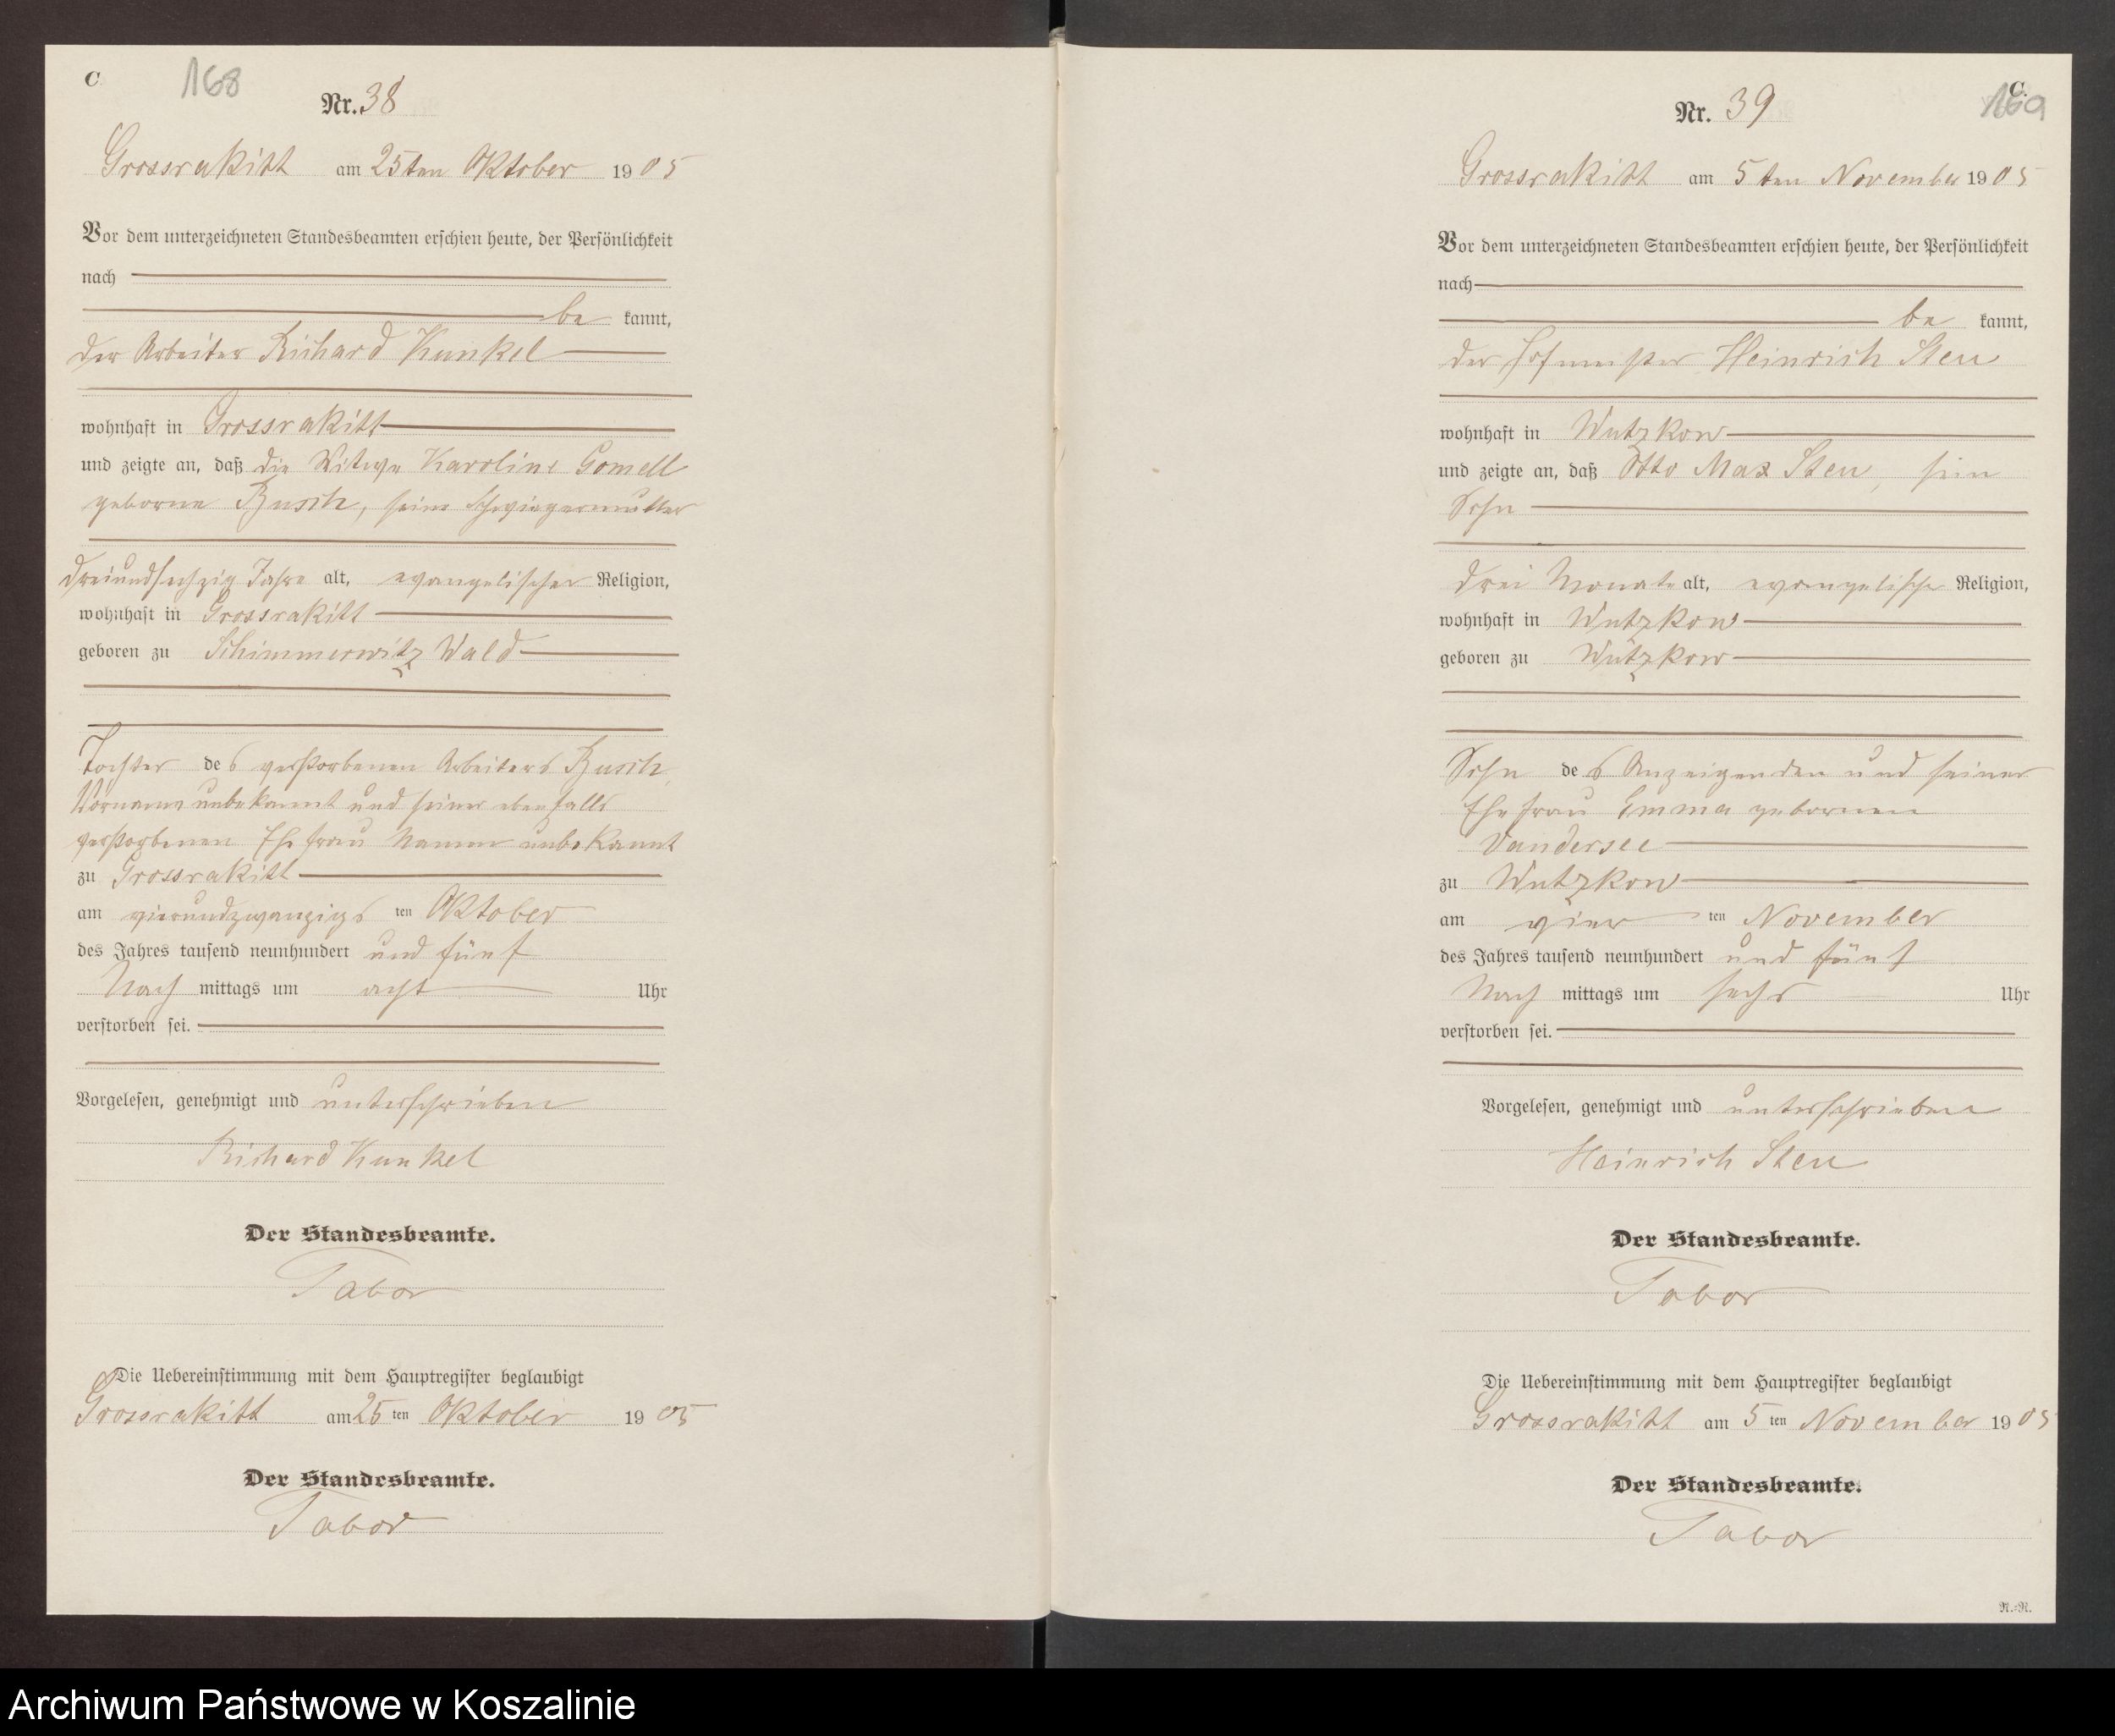 C
168
Nr. 38
Grossrakitt am 25ten Oktober 1905
Vor dem unterzeichneten Standesbeamten erschien heute, der Persönlichkeit
nach
be kannt,
der Arbeiter Richard Kunkel
wohnhaft in Grossrakitt
und zeigte an, daß die Witwe Karoline Gomell
geborne Busch, seine Schwiegermutter
dreiundsechzig Jahre alt, evangelischer Religion,
wohnhaft in Grossrakitt
geboren zu Schimmerwitz Wald
Tochter des verstorbenen Arbeiters Busch,
Vorname unbekannt und seiner ebenfalls
verstorbenen Ehefrau Namen unbekannt
zu Grossrakitt
am vierundzwanzigs ten Oktober
des Jahres tausend neunhundert und fünf
Nach mittags um acht Uhr
verstorben sei.
Vorgelesen, genehmigt und unterschrieben
Richard Kunkel
Der Standesbeamte.
Tabor
Die Uebereinstimmung mit dem Hauptregister beglaubigt
Grossrakitt am 25 ten Oktober 1905
Der Standesbeamte.
Tabor
C.
169
Nr. 39
Grossrakitt am 5ten November 1905
Vor dem unterzeichneten Standesbeamten erschien heute, der Persönlichkeit
nach
be kannt,
der Hofmeister Heinrich Steu
wohnhaft in Wutzkow
und zeigte an, daß Otto Max Steu, sein
Sohn
drei Monate alt, evangelische Religion,
wohnhaft in Wutzkow
geboren zu Wutzkow
Sohn des Anzeigenden und seiner
Ehefrau Emma gebornen
Vandersee
zu Wutzkow
am vier ten November
des Jahres tausend neunhundert und fünf
Nach mittags um sechs Uhr
verstorben sei.
Vorgelesen, genehmigt und unterschrieben
Heinrich Steu
Der Standesbeamte.
Tabor
Die Uebereinstimmung mit dem Hauptregister beglaubigt
Grossrakitt am 5 ten November 1905
Der Standesbeamte.
Tabor
N.-R.
Archiwum Państwowe w Koszalinie